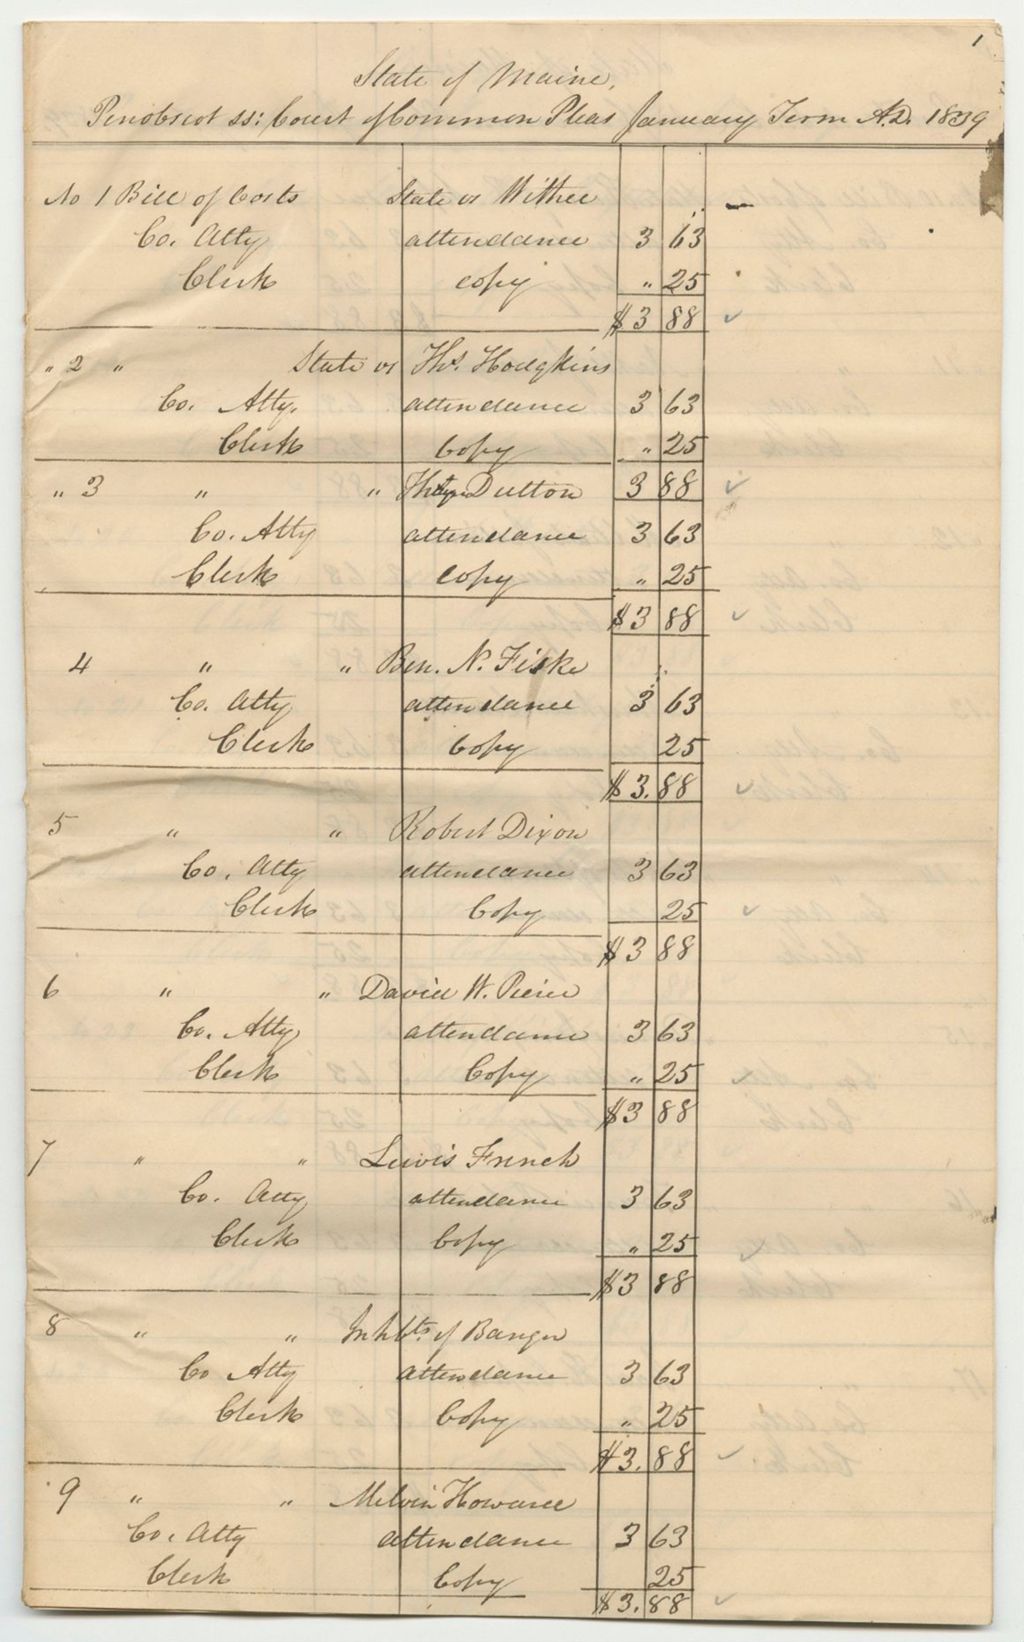 1
State of Maine,
Penobscot ss: Court of Common Pleas January Term A.D. 1839
No 1 Bill of Costs State vs Withee
Co. Atty attendance 3 63
Clerk copy " 25
$3 88
" 2 " State vs Ths. Hodgkins
Co. Atty. attendance 3 63
Clerk Copy " 25
3 88
" 3 " " Dutton
Co. Atty attendance 3 63
Clerk copy " 25
$3 88
4 " " Ben. N. Fiske
Co. Atty attendance 3 63
Clerk Copy 25
$3.88
5 " " Robert Dixon
Co. Atty attendance 3 63
Clerk Copy 25
$3 88
6 " " David W. Pierce
Co. Atty attendance 3 63
Clerk Copy " 25
$3 88
7 " " Lewis French
Co. Atty attendance 3 63
Clerk Copy " 25
$3 88
8 " " Inhbts of Bangor
Co Atty attendance 3 63
Clerk Copy " 25
$3.88
9 " " Melvin Howard
Co. Atty attendance 3 63
Clerk Copy 25
$3.88